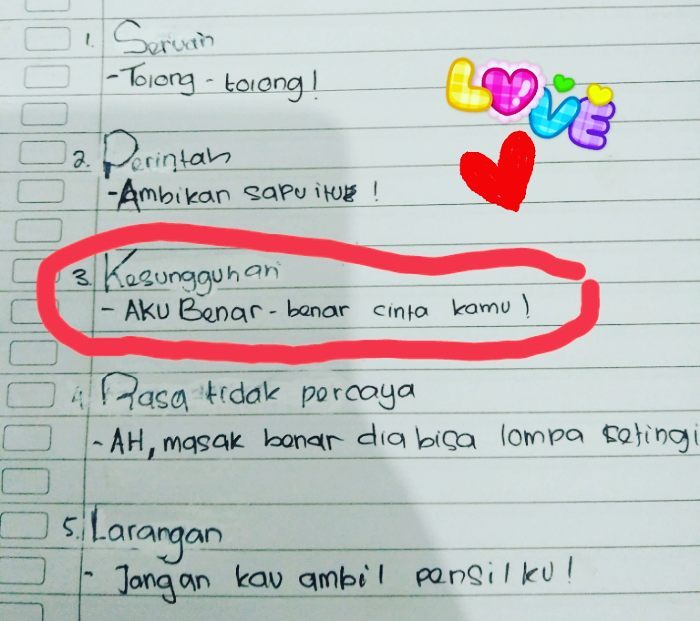 1. Seruan
- Tolong - tolong!
LOVE
2. Perintah
- Ambikan sapu itu !
3. Kesungguhan
- AKU Benar - benar cinta kamu!
4. Rasa tidak percaya
- AH, masak benar dia bisa lompa setingi
5. Larangan
- Jangan kau ambil pensilku!